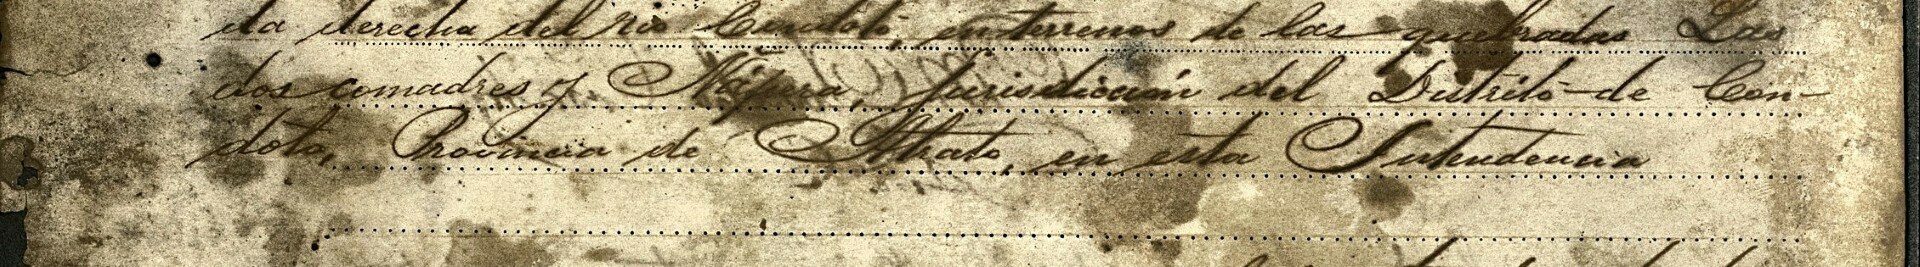 da derecha del rio Condotó, en terrenos de las quebradas Las
dos comadres y Nápera, jurisdicción del Distrito de Con-
doto, Provincia de Atrato, en esta Intendencia